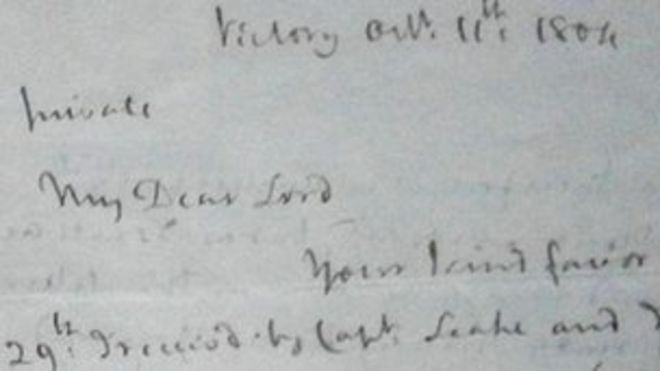 Victory Octr. 11th: 1804
private
My Dear Lord
Your kind favor
29th: I received by Capt. Leake and